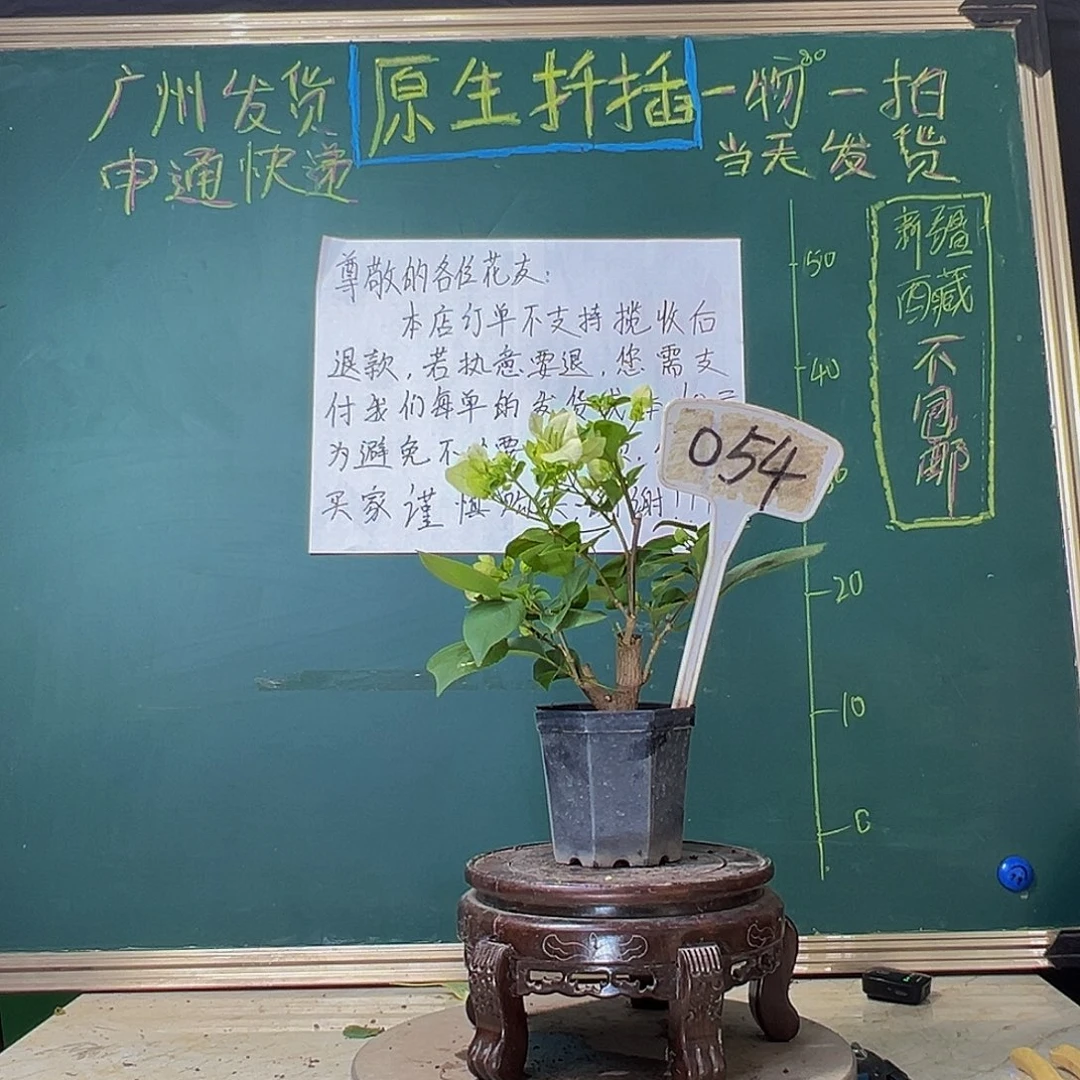 广州发货
申通快递
原生扦插
一物一拍
当天发货
新疆
西藏
不
包
邮
尊敬的各位花友：
本店订单不支持揽收后
退款，若执意要退，您需支
付我们每单的发货
为避免不
买家谨慎
谢!!!
054
50
40
20
10
0